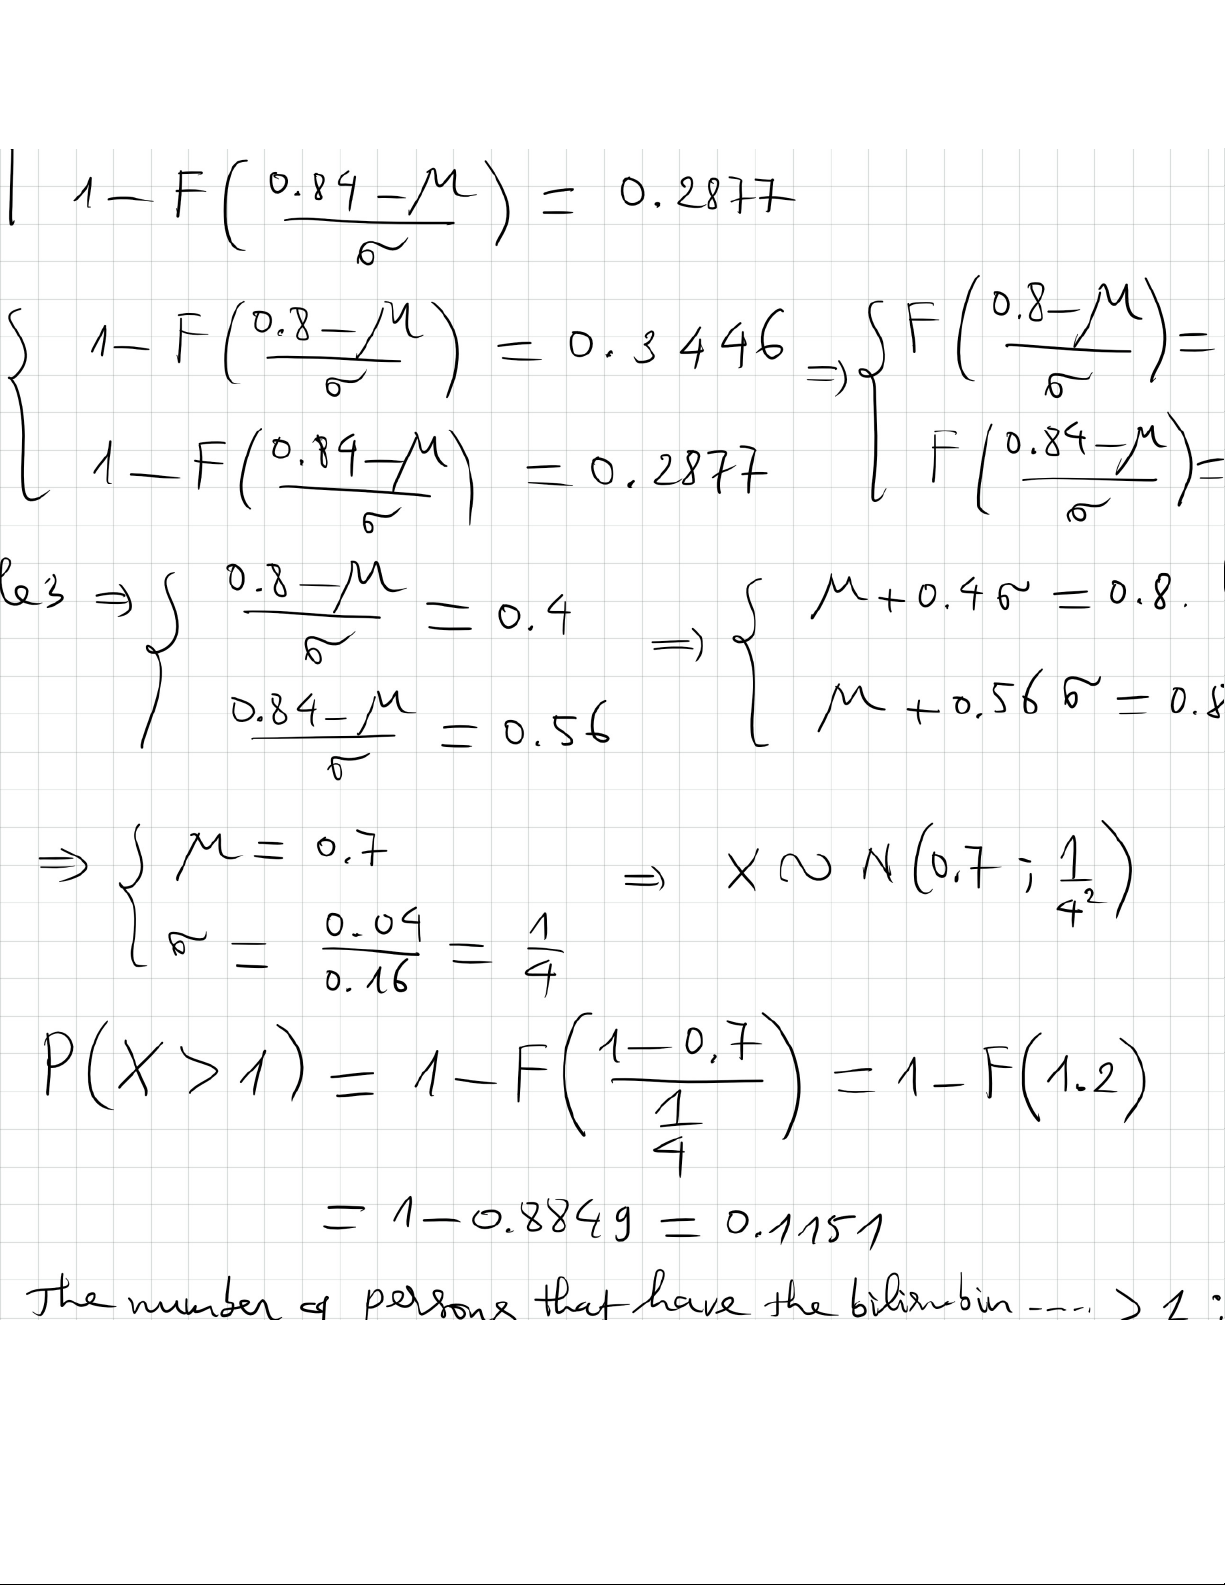 1 - F((0.84 - μ)/σ) = 0.2877
{ 1 - F((0.8 - μ)/σ) = 0.3446 ⇒ { F((0.8 - μ)/σ) =
1 - F((0.84 - μ)/σ) = 0.2877 F((0.84 - μ)/σ) =
⇒ { (0.8 - μ)/σ = 0.4 ⇒ { μ + 0.4σ = 0.8
(0.84 - μ)/σ = 0.56 μ + 0.56σ = 0.8
⇒ { μ = 0.7 ⇒ X ~ N(0,7 ; 1/4²)
σ = 0.04/0.16 = 1/4
P(X > 1) = 1 - F((1 - 0,7)/(1/4)) = 1 - F(1.2)
= 1 - 0.8849 = 0.1151
The number of persons that have the bilirubin ---- > 1 :